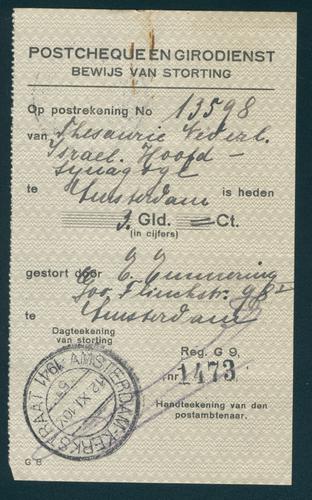 POSTCHEQUE EN GIRODIENST
BEWIJS VAN STORTING
Op postrekening No 13598
van Thesaurie Nederl.
Israel. Hoofd-
synagoge
te Amsterdam is heden
3 Gld. = Ct.
(in cijfers)
gestort door E. Emmering
Gov. Flinckstr. 98
te Amsterdam
Dagteekening
van storting
Reg. G 9.
nr 1473
AMSTERDAM-KERKSTRAAT
12 XI 10V
1941
Handteekening van den
postambtenaar.
G B